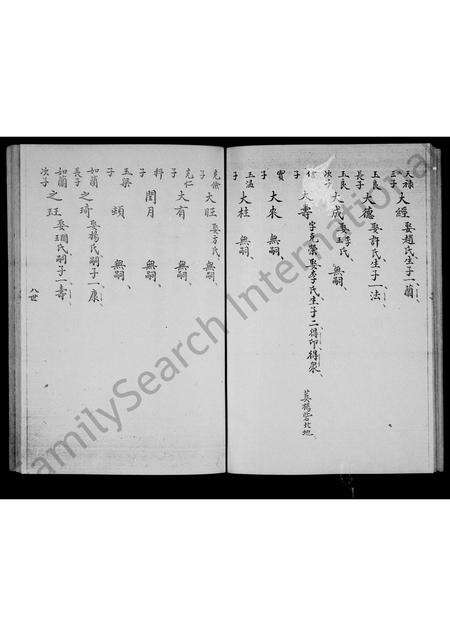 天祿三子 大經 娶趙氏生子一蘭
玉良長子 大德 娶許氏生子一法
玉良次子 大成 娶李氏王氏 無嗣
子 大壽 字克榮娶李氏生子二得印得泉 葬楊營北地
寶子 大來 無嗣
玉溫子 大柱 無嗣
克儉子 大旺 娶方氏 無嗣
克仁子 大有 無嗣
子 閏月 無嗣
玉樂子 頓 無嗣
如蘭長子 之琦 娶楊氏嗣子一康
如蘭次子 之珏 娶氏嗣子一壽
八世
FamilySearch International